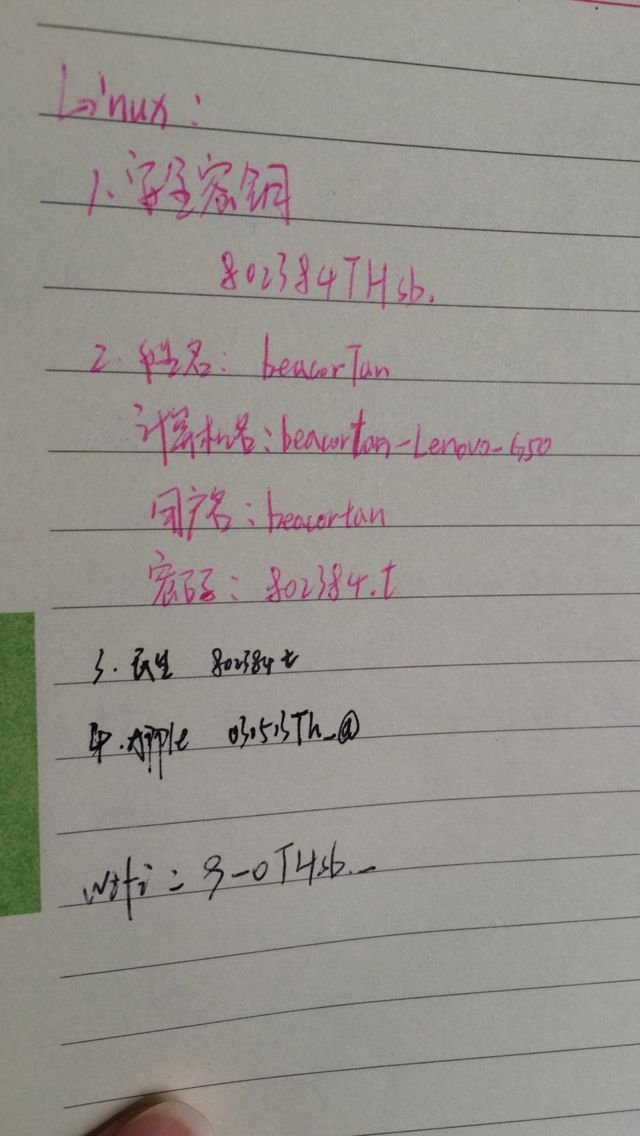 Linux:
1. 安全密钥
802384THsb.
2. 姓名: beacorTan
计算机名: beacortan-Lenovo-G50
用户名: beacortan
密码: 802384.t
3. 民生 802384t
4. Apple
wifi: